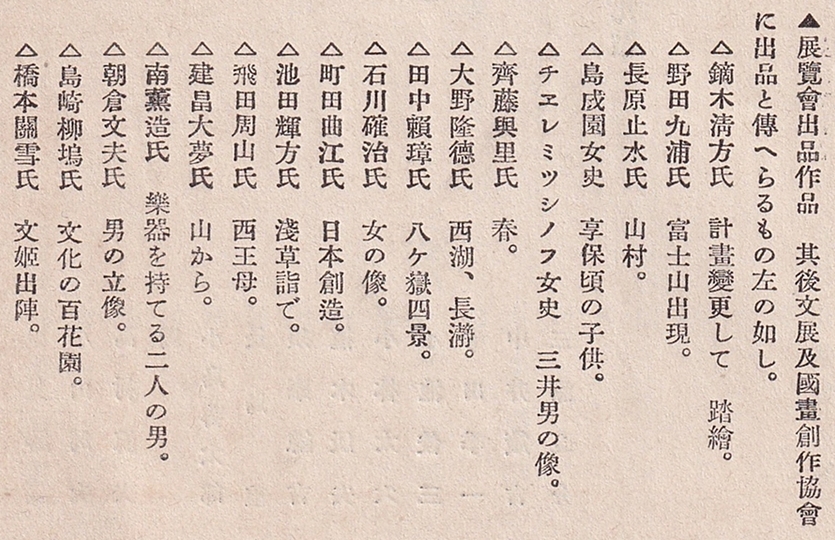 ▲展覽會出品作品　其後文展及國畫創作協會
に出品と傳へらるもの左の如し。
△鏑木淸方氏　計畫變更して　踏繪。
△野田九浦氏　富士山出現。
△長原止水氏　山村。
△島成園女史　享保頃の子供。
△チエレミツシノフ女史　三井男の像。
△齊藤與里氏　春。
△大野隆德氏　西湖、長瀞。
△田中賴璋氏　八ケ嶽四景。
△石川確治氏　女の像。
△町田曲江氏　日本創造。
△池田輝方氏　淺草詣で。
△飛田周山氏　西王母。
△建畠大夢氏　山から。
△南薰造氏　樂器を持てる二人の男。
△朝倉文夫氏　男の立像。
△島崎柳塢氏　文化の百花園。
△橋本關雪氏　文姬出陣。